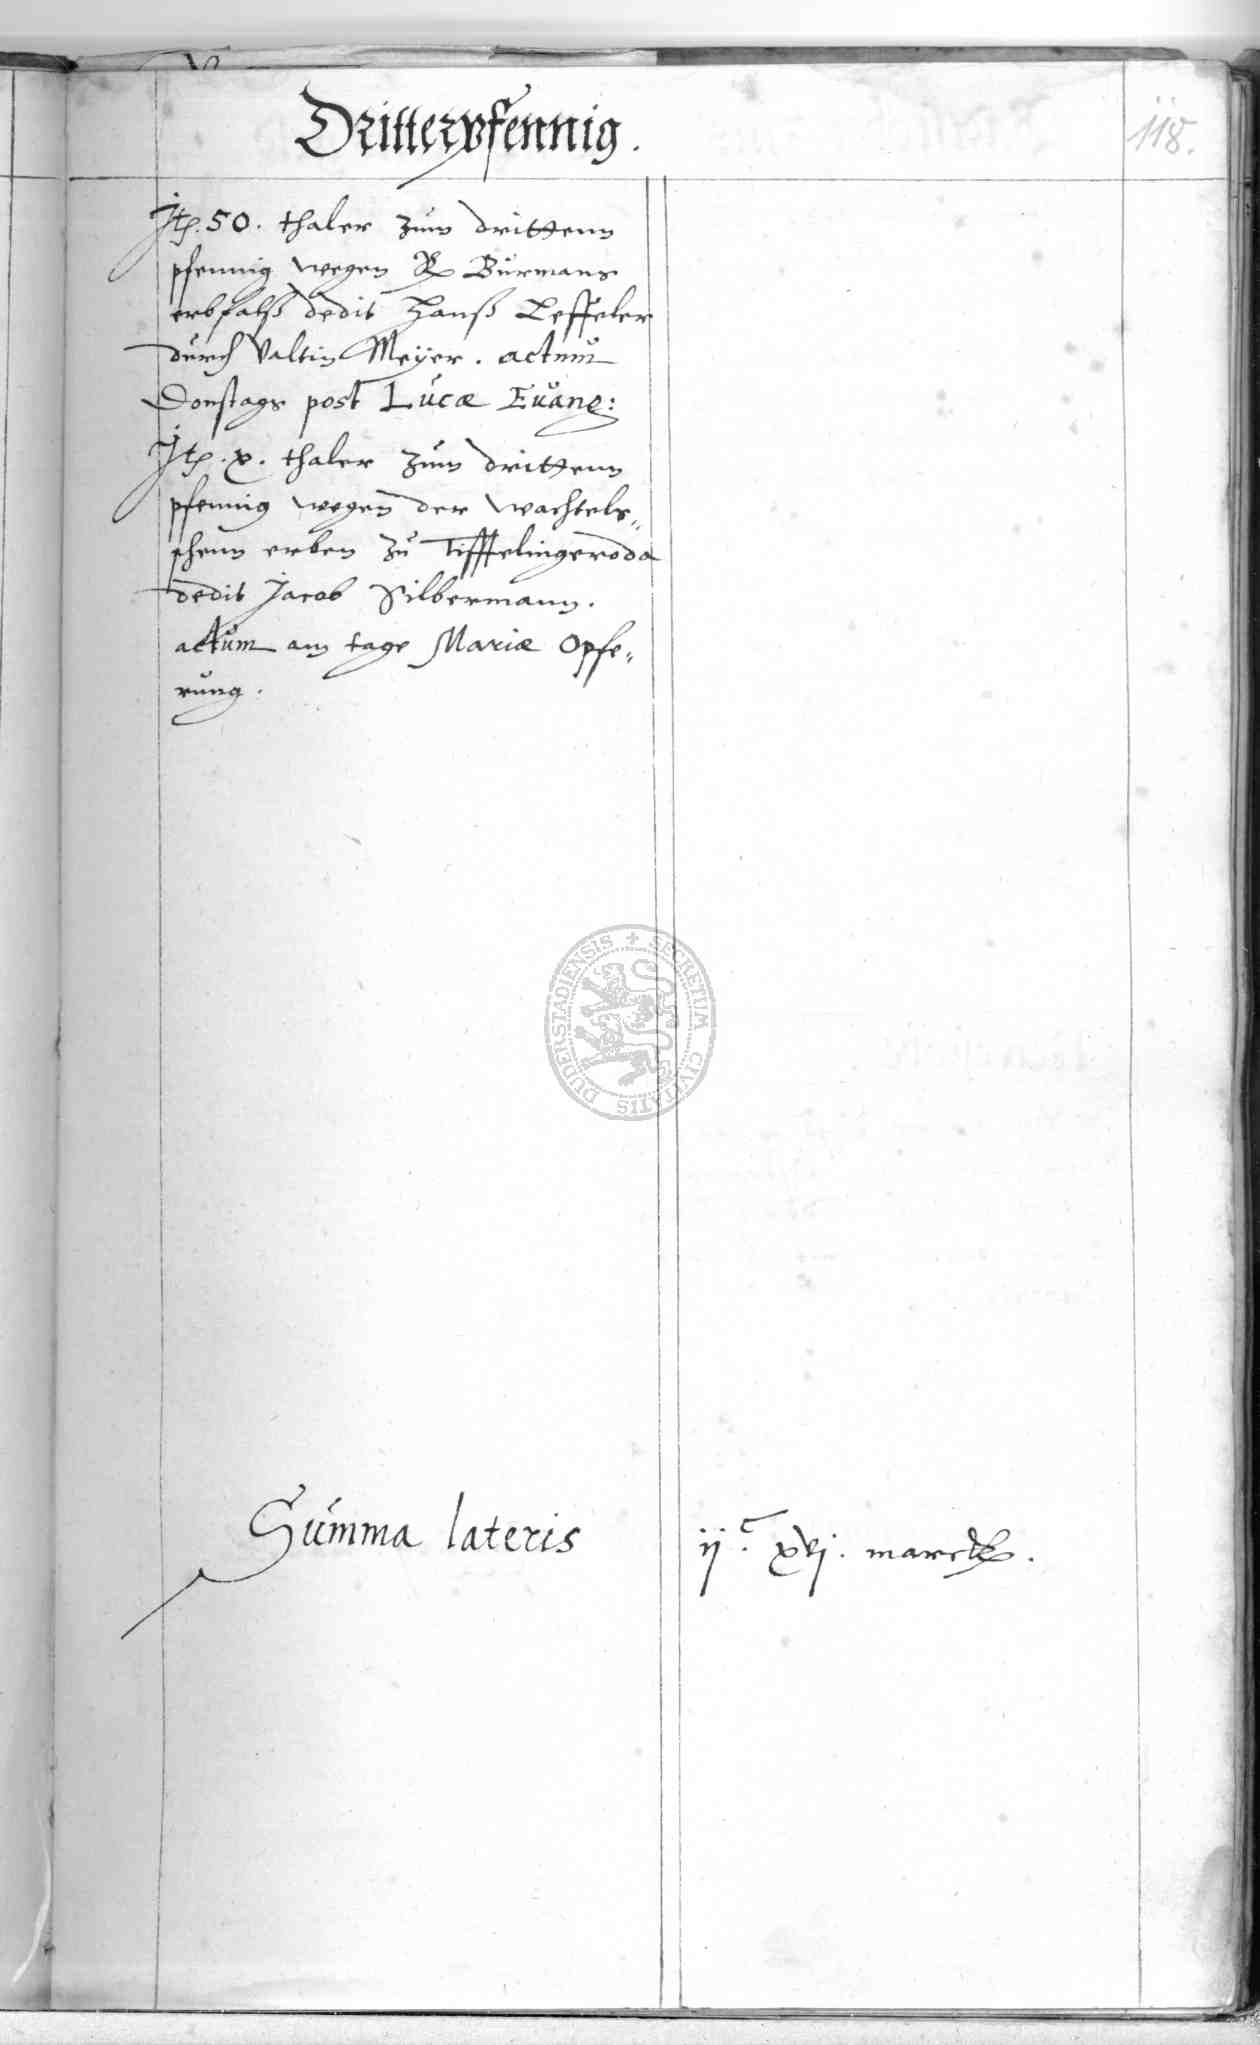 Dritterpfennig.
118.
Jtē. 50. thaler zum drittenn
pfennig wegen Bürmans
erbfalß dedit Hanß Leffeler
durch Valtin Meÿer. actum
Donstags post Lucæ Euang:
Jtē. x. thaler zum drittenn
pfennig wegen der Wachtels„
schenn erben zu Tifftelingeroda
dedit Jacob Silbermann.
actum am tage Mariæ Opfe„
rung.
DUDERSTADIENSIS + SECRETUM CIVITATIS
Summa lateris ijc. xvj. marck.